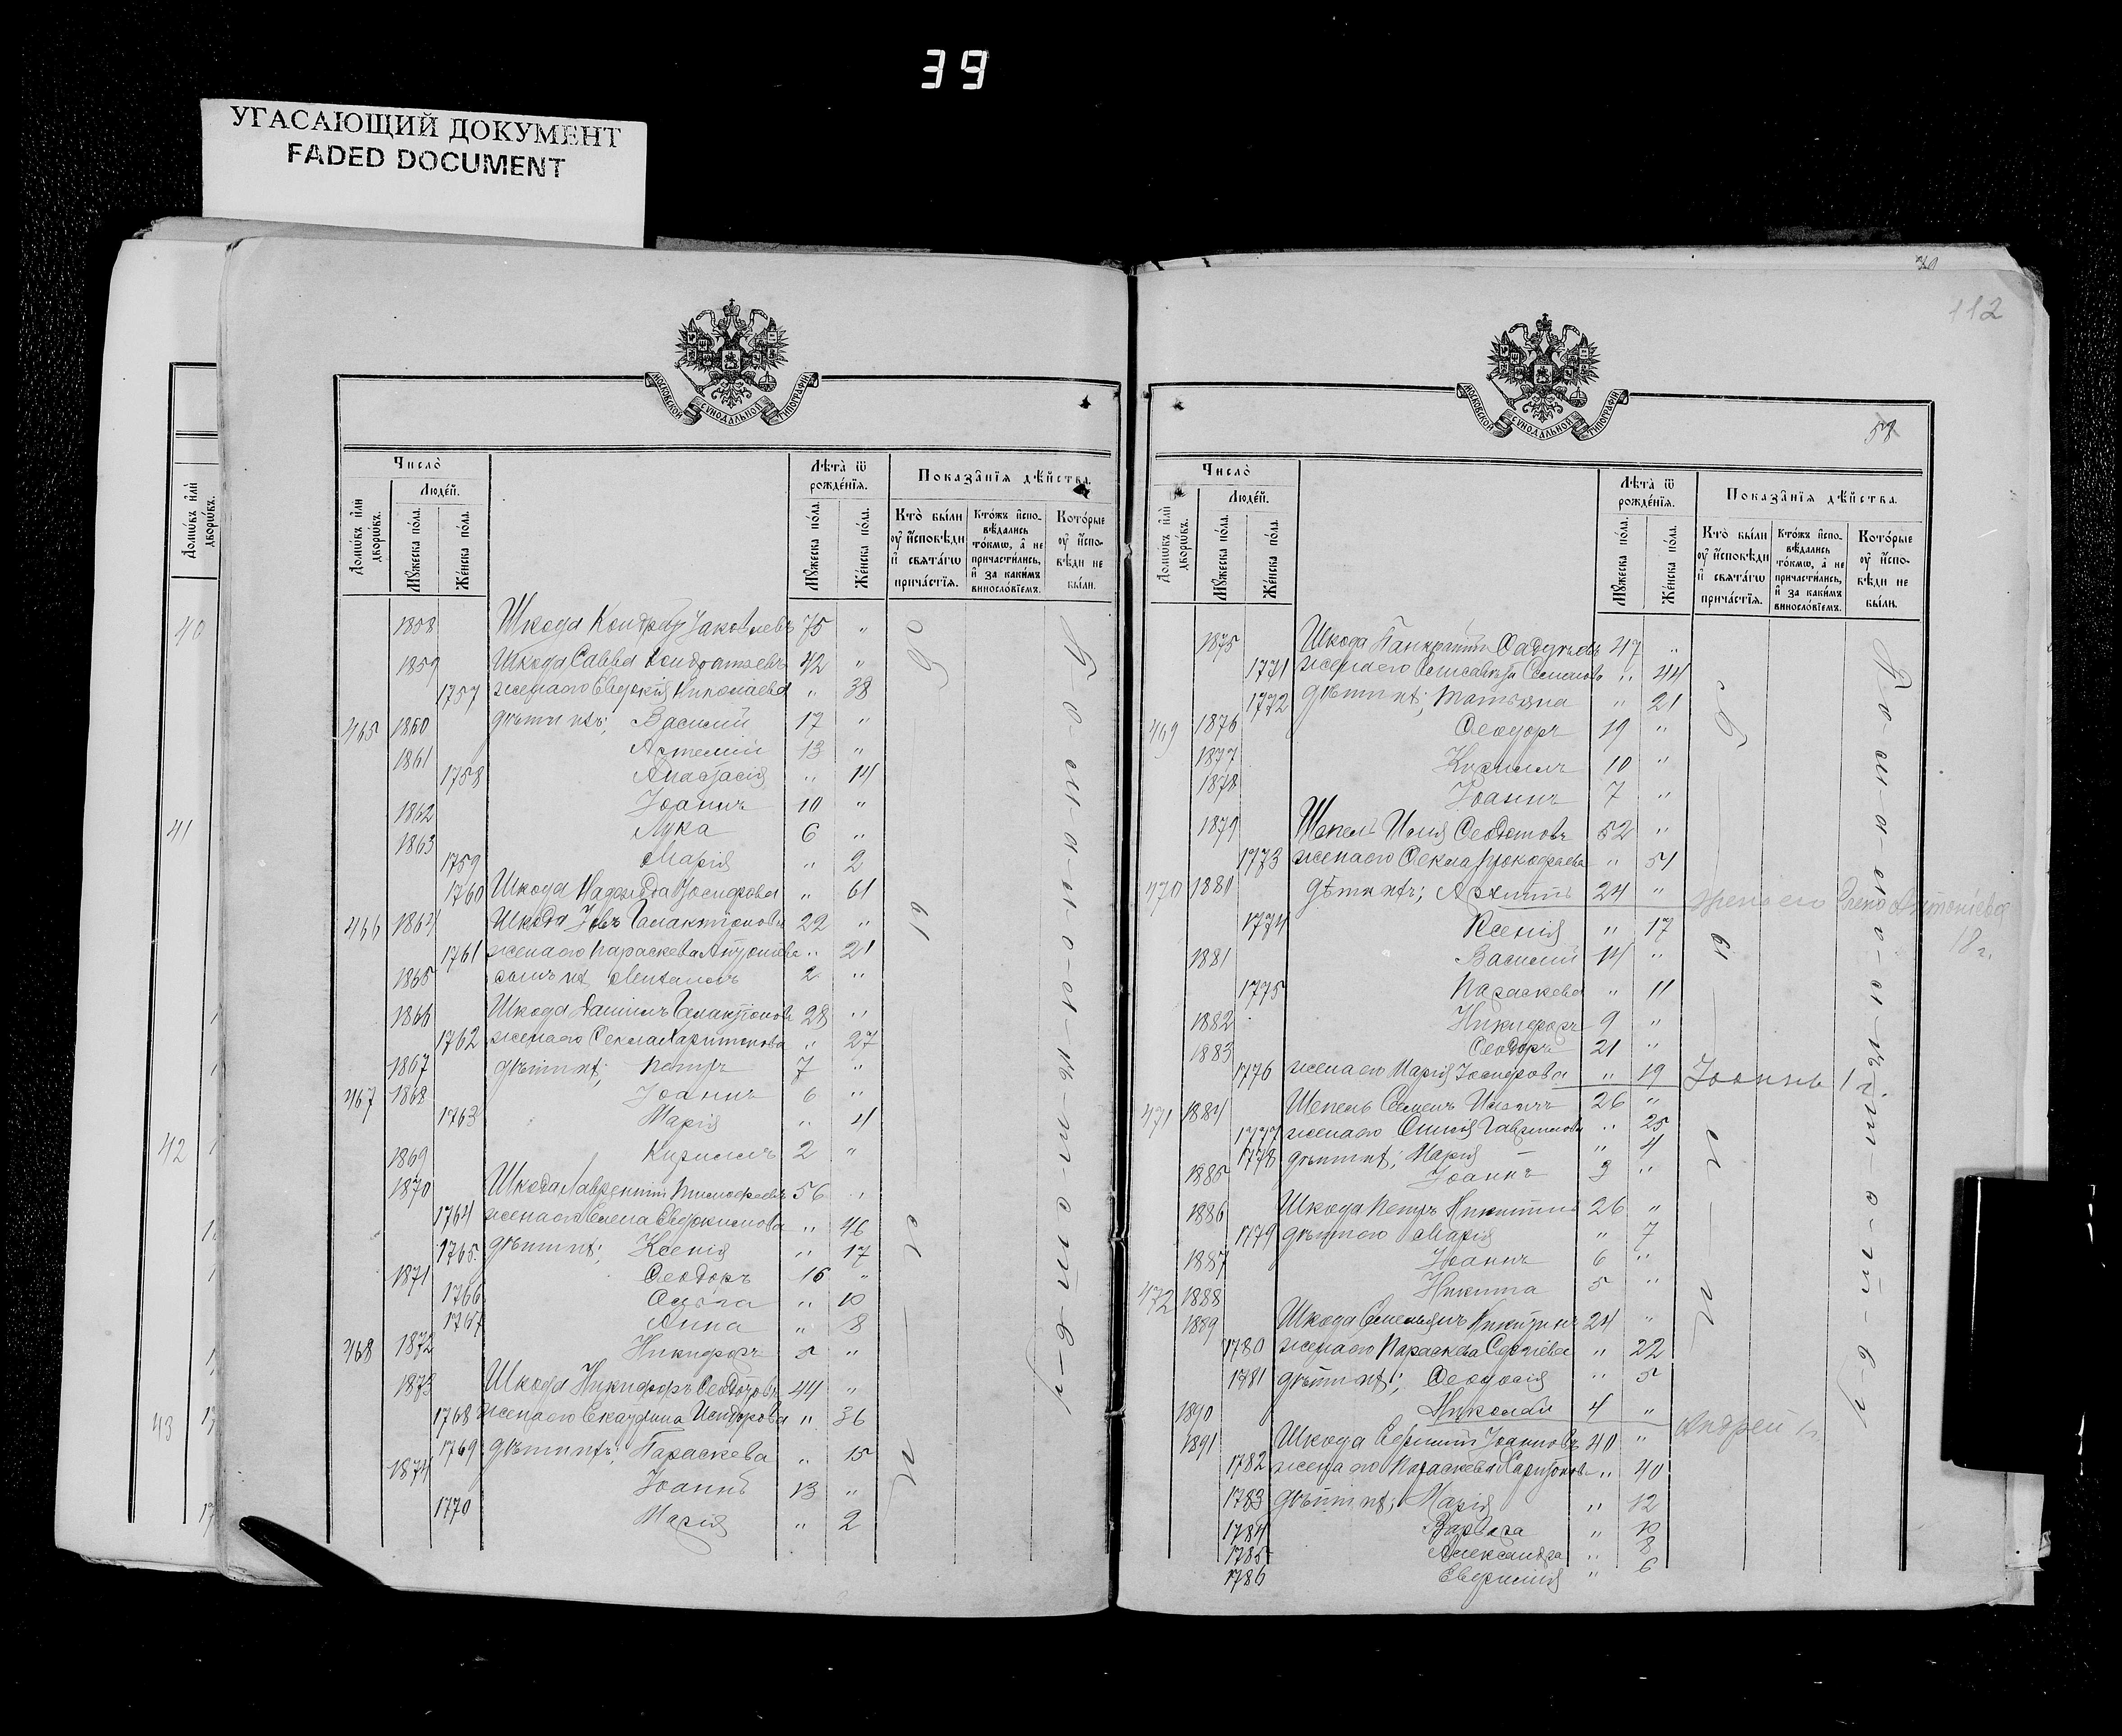 39
УГАСАЮЩИЙ ДОКУМЕНТ
FADED DOCUMENT
40
41
42
43
МОСКОВСКОЙ СУНОДАЛЬНОЙ ТИПОГРАФІИ
Число̀
Людей.
Домѡвъ ѝлѝ дворѡвъ.
Мꙋжеска пола.
Женска пола.
Лѣта̀ ѿ рожденїѧ.
Мꙋжеска пола.
Женска пола.
Показанїѧ дѣйства.
Кто̀ были оу҆ исповѣди и свѧтагѡ причастїѧ.
Ктожъ исповѣдались токмѡ, а не причастились, и за какимъ винословїемъ.
Которые оу҆ исповѣди не были.
1858 Шкода Кондрат Яковлевъ 75 "
1859 Шкода Савва Кондратьевъ 42 "
1757 жена его Евдокія Николаева " 38
465 1860 дѣти ихъ: Василій 17 "
1861 Артемій 13 "
1758 Анастасія " 14
1862 Іоаннъ 10 "
1863 Лука 6 "
1759 Марія " 2
1760 Шкода Іосифова " 61
466 1864 Шкода Іовъ Галактіоновъ 22 "
1761 жена его Параскева Антоніева " 21
1865 сынъ ихъ 2 "
1866 Шкода Даніилъ Галактіоновъ 28 "
1762 жена его Ѳекла Харитонова " 27
1867 дѣти ихъ: Петръ 7 "
467 1868 Іоаннъ 6 "
1763 Марія " 4
1869 Кириллъ 2 "
1870 Шкода Лаврентій Тимоѳеевъ 56 "
1764 жена его Елена Евдокимова " 46
1765 дѣти ихъ: Ксенія " 17
1871 Ѳеодоръ 16 "
1766 Ольга " 10
1767 Анна " 8
468 1872 Никифоръ 5 "
1873 Шкода Никифоръ Ѳеодотовъ 44 "
1768 жена его Екатерина Исидорова " 36
1769 дѣти ихъ: Параскева " 15
1874 Іоаннъ 13 "
1770 Марія " 2
112
МОСКОВСКОЙ СУНОДАЛЬНОЙ ТИПОГРАФІИ
Число̀
Людей.
Домѡвъ ѝлѝ дворѡвъ.
Мꙋжеска пола.
Женска пола.
Лѣта̀ ѿ рожденїѧ.
Мꙋжеска пола.
Женска пола.
Показанїѧ дѣйства.
Кто̀ были оу҆ исповѣди и свѧтагѡ причастїѧ.
Ктожъ исповѣдались токмѡ, а не причастились, и за какимъ винословїемъ.
Которые оу҆ исповѣди не были.
1875 Шкода Панкратій 47 "
1771 жена его Елисавета Семенова " 44
1772 дѣти ихъ: Татьяна " 21
469 1876 Ѳеодоръ 19 "
1877 Кириллъ 10 "
1878 Іоаннъ 7 "
1879 Шепель Илія Ѳеодотовъ 52 "
1773 жена его Ѳекла Прокофьева " 51
470 1880 дѣти ихъ: Архиппъ 24 " жена его Елена Антоніева 18 г.
1774 Ксенія " 17
1881 Василій 14 "
1775 Параскева " 11
1882 Никифоръ 9 "
1883 Ѳеодоръ 21 "
1776 жена его Марія Іосифова " 19 Іоаннъ 1 г.
471 1884 Шепель Семенъ Иліинъ 26 "
1777 жена его Гавриилова " 25
1778 дѣти ихъ: Марія " 4
1885 Іоаннъ 3 "
1886 Шкода Петръ Никитинъ 26 "
1779 дѣти его Марія " 7
1887 Іоаннъ 6 "
472 1888 Никита 5 "
1889 Шкода Емельянъ Никитинъ 24 "
1780 жена его Параскева Сергіева " 22
1781 дѣти ихъ: Ѳеодосія " 5
1890 Николай 4 "
1891 Шкода Іоанновъ 40 " Андрей 1 г.
1782 жена его Параскева Харитонова " 40
1783 дѣти ихъ: Марія " 12
1784 Варвара " 10
1785 Александра " 8
1786 Евфимія " 6